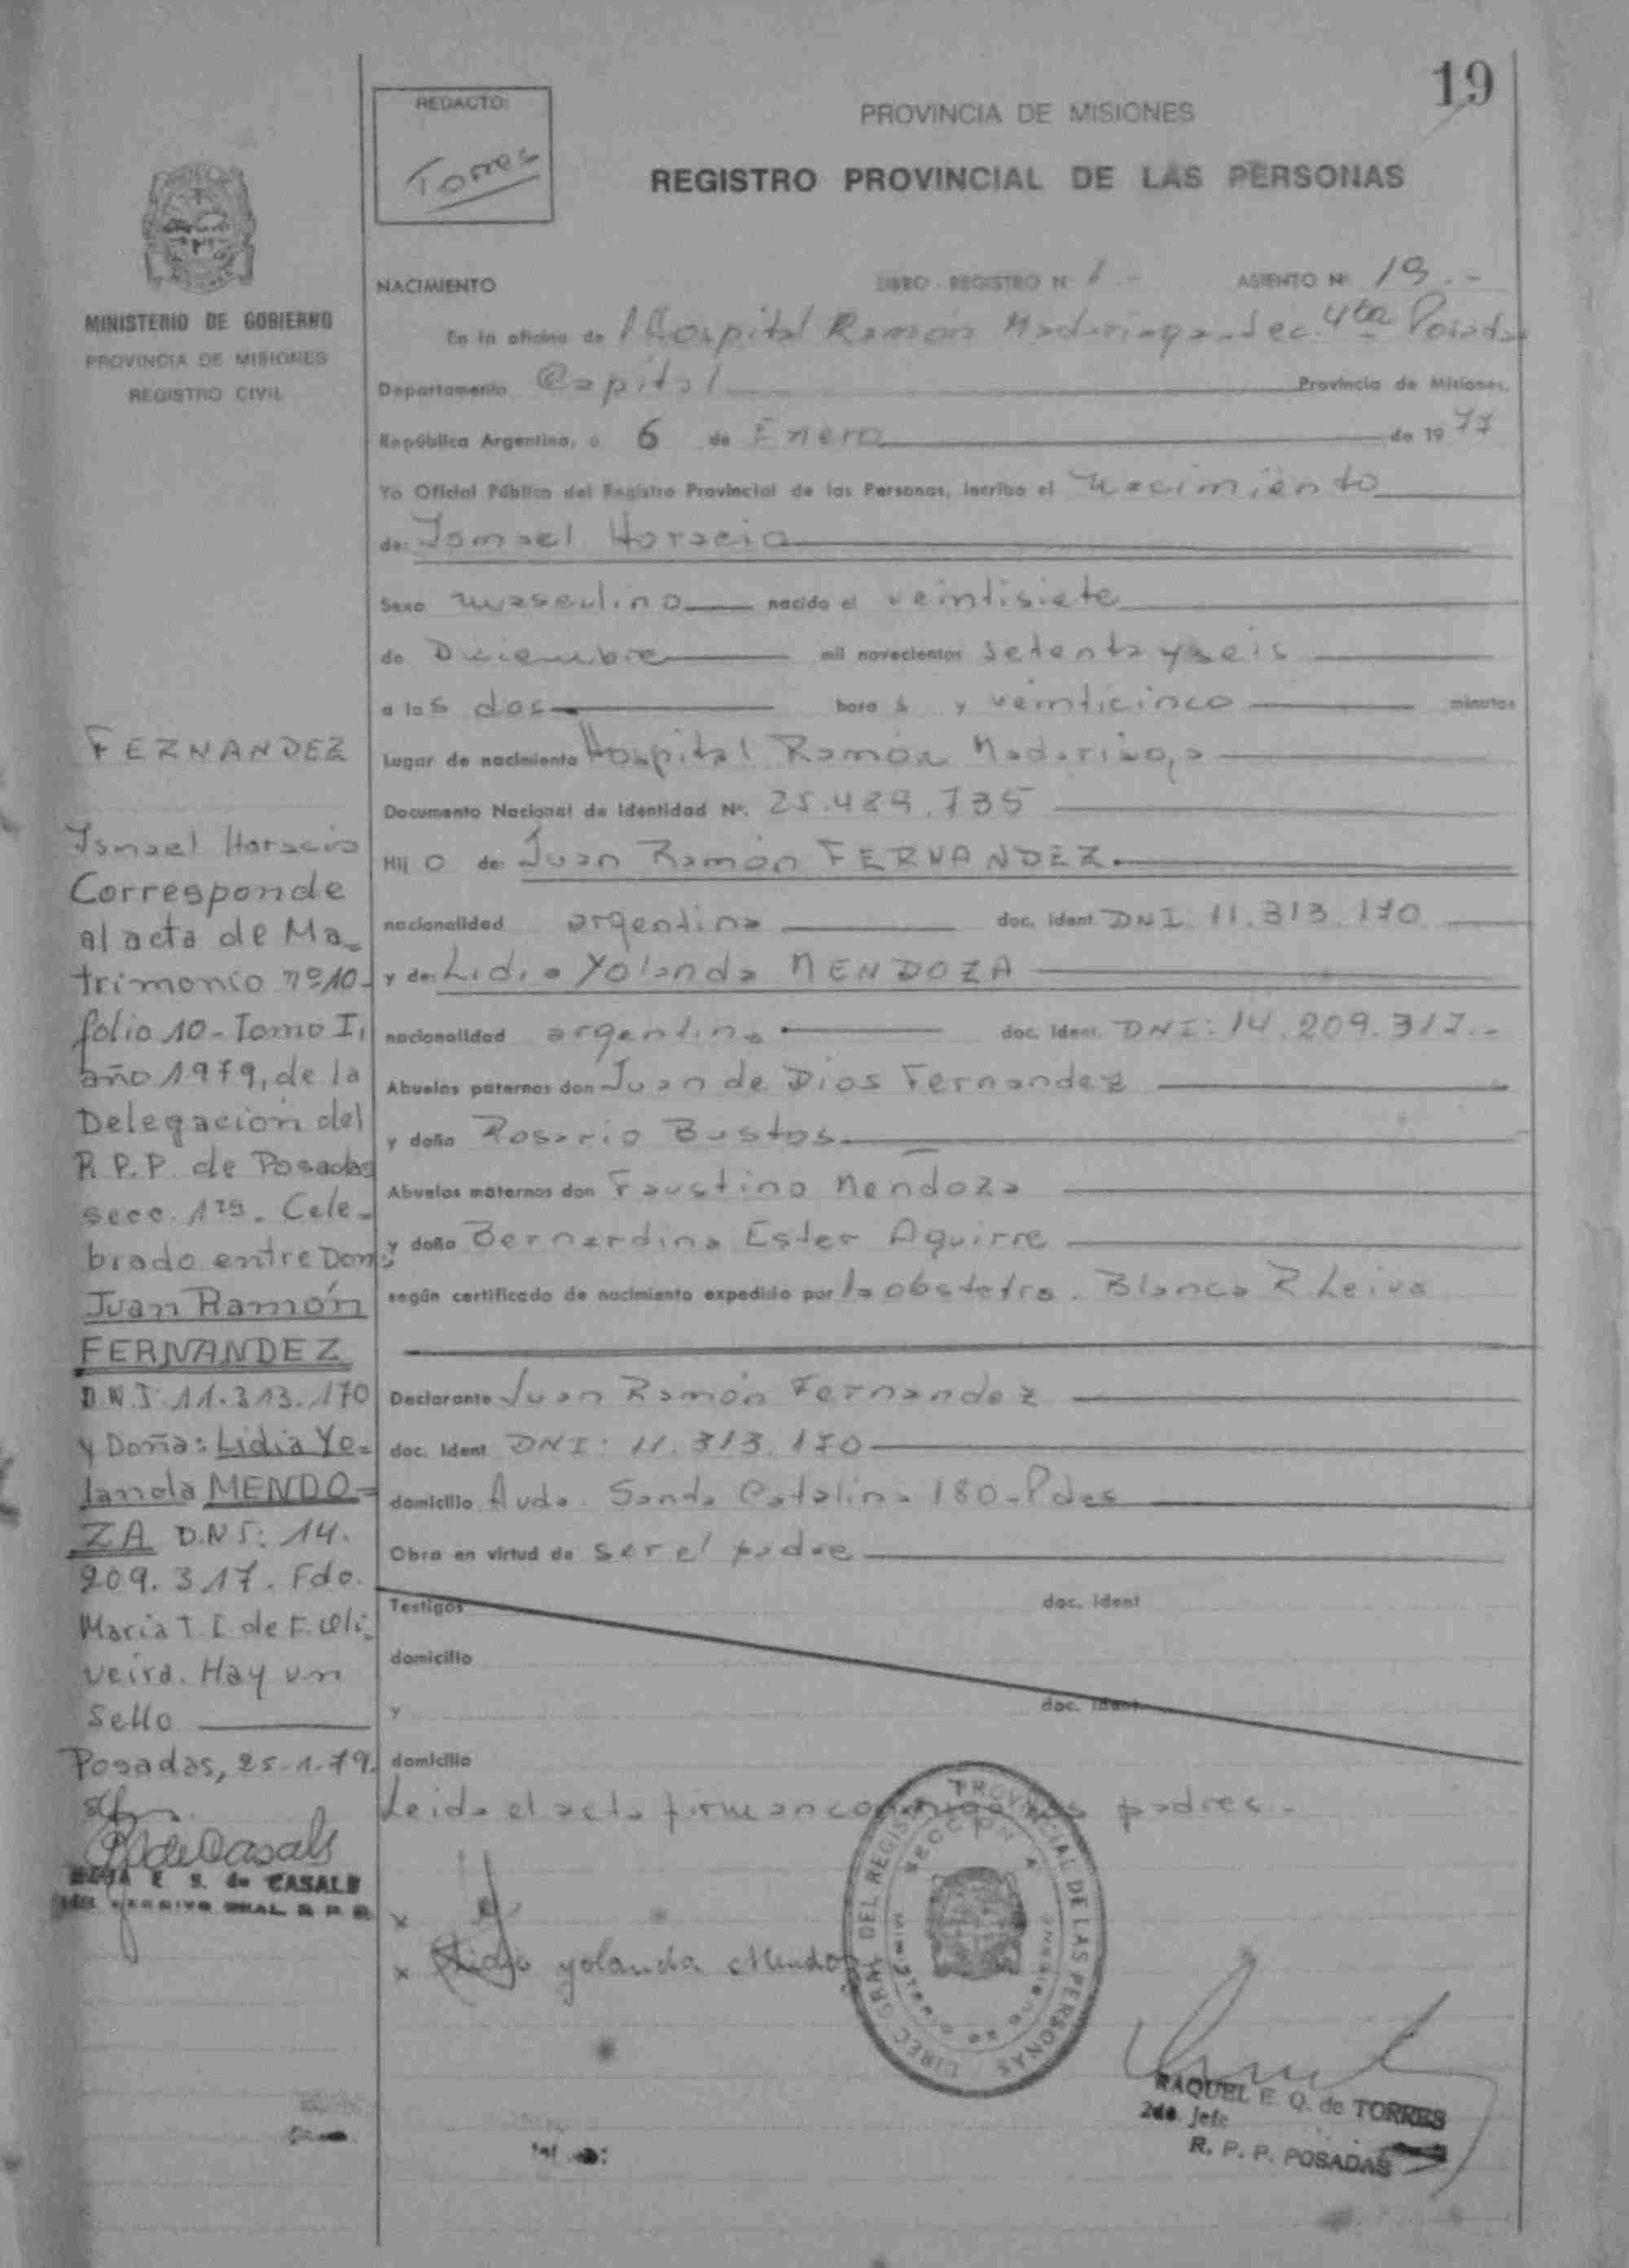 19
REDACTO:
Torres
PROVINCIA DE MISIONES
REGISTRO PROVINCIAL DE LAS PERSONAS
MINISTERIO DE GOBIERNO
PROVINCIA DE MISIONES
REGISTRO CIVIL
NACIMIENTO LIBRO - REGISTRO Nº 1.- ASIENTO Nº 19.-
En la oficina de l Hospital Ramón Madariaga - Sec. 4ta Posadas
Departamento Capital Provincia de Misiones,
República Argentina, a 6 de Enero de 1977
Yo Oficial Público del Registro Provincial de las Personas, iscribo el nacimiento
de: Ismael Horacio
Sexo masculino nacido el veintisiete
de Diciembre mil novecientos setenta y seis
a las dos hora s y veinticinco minutos
Lugar de nacimiento Hospital Ramón Madariaga
Documento Nacional de Identidad Nº. 25.489.735
Hij o de: Juan Ramón FERNANDEZ.
nacionalidad argentina doc. ident. DNI: 11.313.170
y de: Lidia Yolanda MENDOZA
nacionalidad argentina doc. ident. DNI: 14.209.317.-
Abuelos paternos don Juan de Dios Fernandez
y doña Rosario Bustos
Abuelos maternos don Faustino Mendoza
y doña Bernardina Ester Aguirre
según certificado de nacimiento expedido por la obstetra. Blanca R. Leiva
Declarante Juan Ramón Fernandez
doc. ident DNI: 11.313.170
domicilio Avda. Santa Catalina 180 - Pdas
Obra en virtud de ser el padre
Testigos doc. ident
domicilio
y doc. ident
domicilio
Leida el acta firman conmigo los padres.-
x
x Lidia yolanda Mendoza
DIREC. GRAL. DEL REGISTRO PROVINCIAL DE LAS PERSONAS
SECCION 4
RAQUEL E. Q. de TORRES
2do. Jefe
R. P. P. POSADAS
FERNANDEZ
Ismael Horacio
Corresponde
al acta de Ma-
trimonio nº 10-
folio 10 - Tomo I,
año 1979, de la
Delegación del
R.P.P. de Posadas
secc. 1ra. Cele-
brado entre Don:
Juan Ramón
FERNANDEZ
D.N.I 11.313.170
y Doña: Lidia Yo-
landa MENDO-
ZA D.N.I: 14.
209.317. Fdo.
Maria T. I. de F. Oli-
veira. Hay un
Sello
Posadas, 25-1-79.
E. S. de CASALS